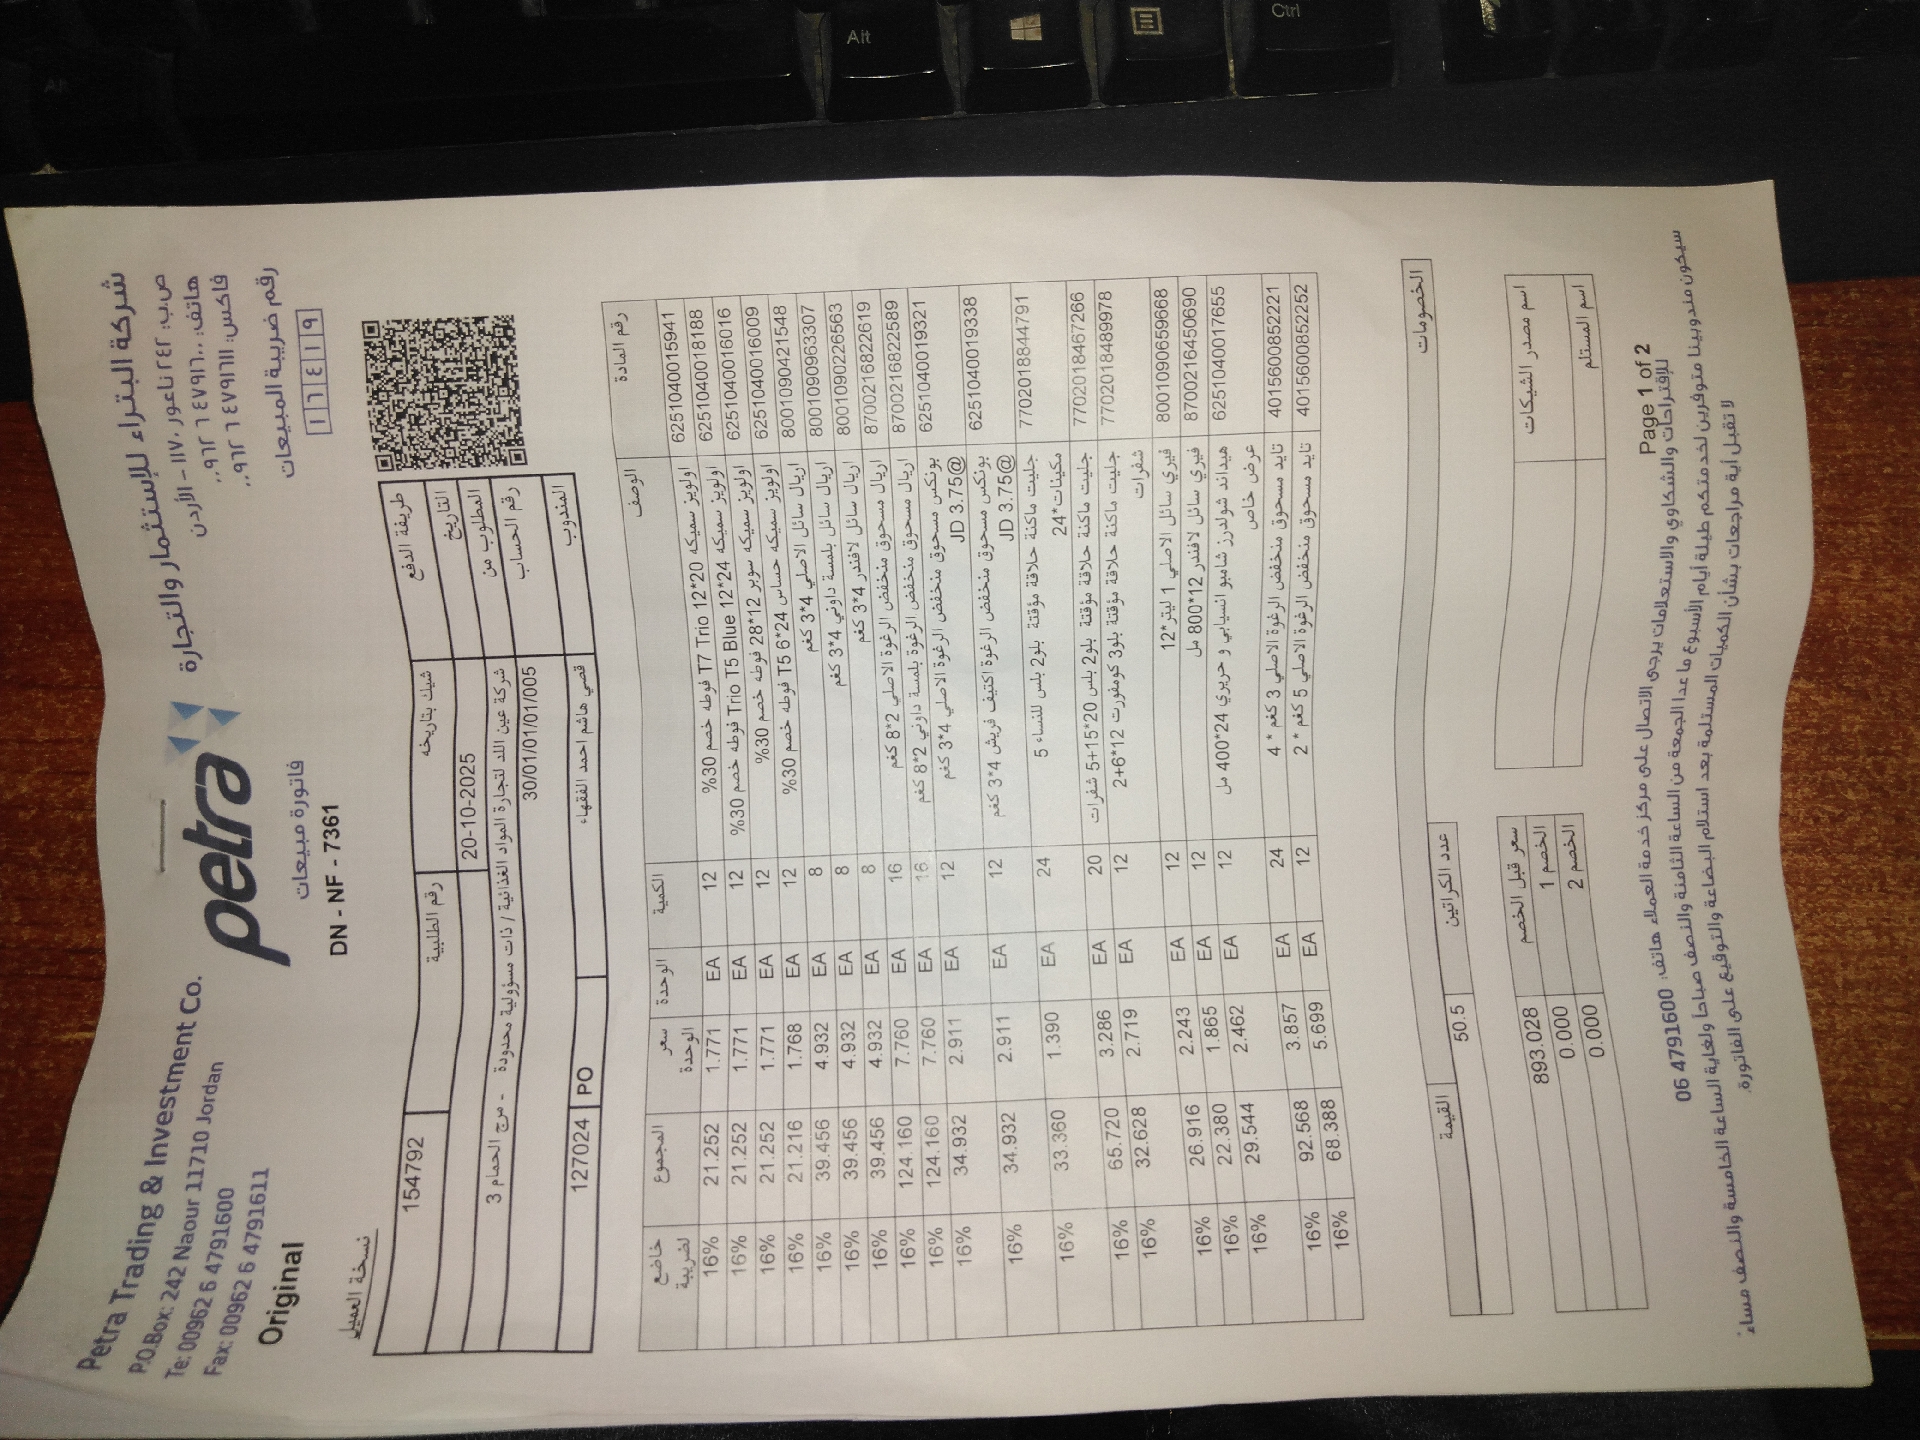 Petra Trading & Investment Co.
P.O.Box: 242 Naour 11710 Jordan
Te: 00962 6 4791600
Fax: 00962 6 4791611
Original
petra
شركة البتراء للإستثمار والتجارة
ص.ب: ٢٤٢ ناعور ١١٧١٠ - الأردن
هاتف: ٤٧٩١٦٠٠ ٦ ٩٦٢..
فاكس: ٤٧٩١٦١١ ٦ ٩٦٢..
رقم ضريبة المبيعات
١٦٤١٩
فاتورة مبيعات
DN - NF - 7361
نسخة العميل
طريقة الدفع شيك بتاريخه رقم الطلبية 154792
التاريخ 20-10-2025
المطلوب من شركة عين اللد لتجارة المواد الغذائية / ذات مسؤولية محدودة - مرج الحمام 3
رقم الحساب 30/01/01/01/005
المندوب قصي هاشم احمد الفقهاء PO 127024
رقم المادة الوصف الكمية الوحدة سعر الوحدة المجموع خاضع لضريبة
6251040015941 اولويز سميكه T7 Trio 12*20 فوطه خصم 30% 12 EA 1.771 21.252 16%
6251040018188 اولويز سميكه Trio T5 Blue 12*24 فوطه خصم 30% 12 EA 1.771 21.252 16%
6251040016016 اولويز سميكه سوبر 12*28 فوطه خصم 30% 12 EA 1.771 21.252 16%
6251040016009 اولويز سميكه حساس T5 6*24 فوطه خصم 30% 12 EA 1.768 21.216 16%
8001090421548 اريال سائل الاصلي 4*3 كغم 8 EA 4.932 39.456 16%
8001090963307 اريال سائل بلمسة داوني 4*3 كغم 8 EA 4.932 39.456 16%
8001090226563 اريال سائل لافندر 4*3 كغم 8 EA 4.932 39.456 16%
8700216822619 اريال مسحوق منخفض الرغوة الاصلي 2*8 كغم 16 EA 7.760 124.160 16%
8700216822589 اريال مسحوق منخفض الرغوة بلمسة داوني 2*8 كغم 16 EA 7.760 124.160 16%
6251040019321 بونكس مسحوق منخفض الرغوة الاصلي 4*3 كغم 12 EA 2.911 34.932 16%
@JD 3.75
6251040019338 بونكس مسحوق منخفض الرغوة اكتيف فريش 4*3 كغم 12 EA 2.911 34.932 16%
@JD 3.75
7702018844791 جليت ماكنة حلاقة مؤقتة بلو2 بلس للنساء 5 24 EA 1.390 33.360 16%
مكينات*24
7702018467266 جليت ماكنة حلاقة مؤقتة بلو2 بلس 20*15+5 شفرات 20 EA 3.286 65.720 16%
7702018489978 جليت ماكنة حلاقة مؤقتة بلو3 كومفورت 12*6+2 12 EA 2.719 32.628 16%
شفرات
8001090659668 فيري سائل الاصلي 1 ليتر*12 12 EA 2.243 26.916 16%
8700216450690 فيري سائل لافندر 12*800 مل 12 EA 1.865 22.380 16%
6251040017655 هيداند شولدرز شامبو انسيابي و حريري 24*400 مل 12 EA 2.462 29.544 16%
عرض خاص
4015600852221 تايد مسحوق منخفض الرغوة الاصلي 3 كغم * 4 24 EA 3.857 92.568 16%
4015600852252 تايد مسحوق منخفض الرغوة الاصلي 5 كغم * 2 12 EA 5.699 68.388 16%
الخصومات عدد الكراتين القيمة
50.5
اسم مصدر الشيكات
اسم المستلم
سعر قبل الخصم 893.028
الخصم 1 0.000
الخصم 2 0.000
Page 1 of 2
للإقتراحات والشكاوي والاستعلامات يرجى الاتصال على مركز خدمة العملاء هاتف: 4791600 06
سيكون مندوبينا متوفرين لخدمتكم طيلة أيام الأسبوع ما عدا الجمعة من الساعة الثامنة والنصف صباحا ولغاية الساعة الخامسة والنصف مساء.
لا تقبل أية مراجعات بشأن الكميات المستلمة بعد استلام البضاعة والتوقيع على الفاتورة.
Alt
Ctrl